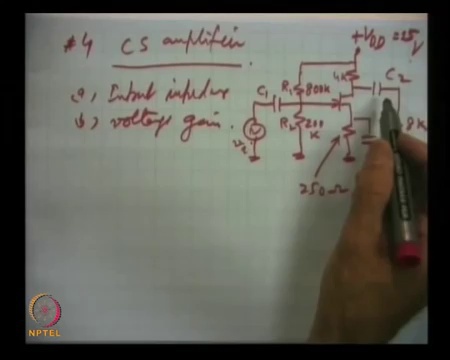 #4 CS amplifier
a, Input impedance
b, voltage gain.
+VDD = 25V
4K
C2
R1 800K
C1
R2 200K
8K
250Ω
NPTEL